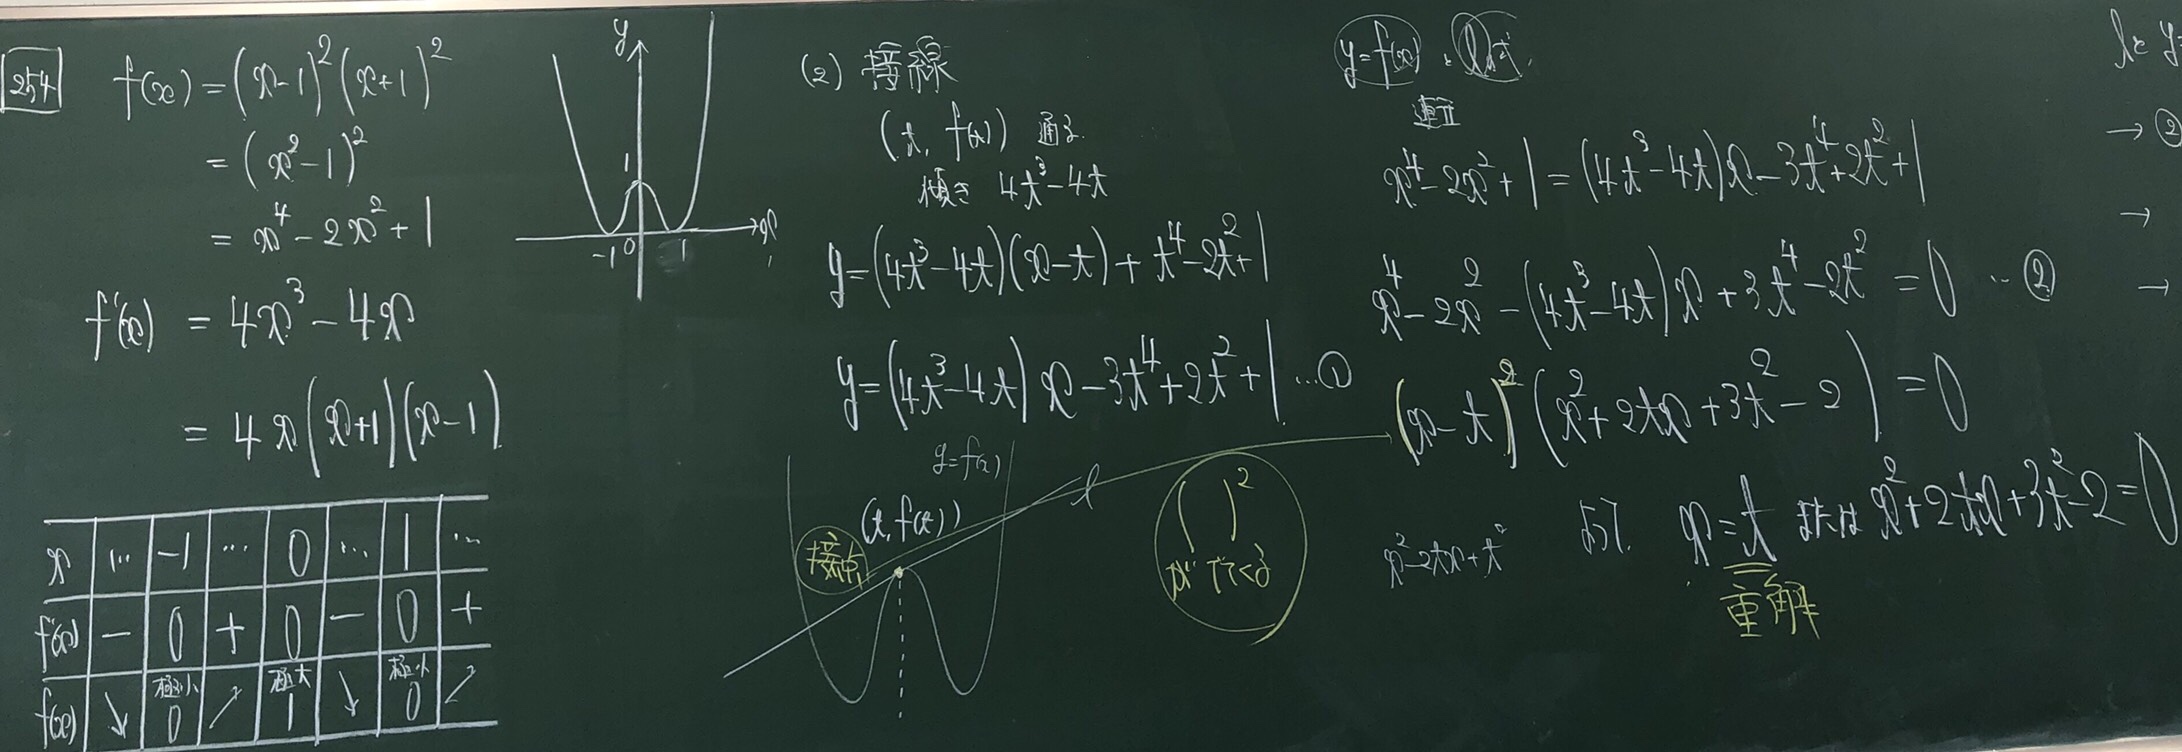 254
f(x) = (x-1)²(x+1)²
= (x²-1)²
= x⁴-2x²+1
f'(x) = 4x³-4x
= 4x(x+1)(x-1)
x … -1 … 0 … 1 …
f'(x) - 0 + 0 - 0 +
f(x) ↘ 極小 0 ↗ 極大 1 ↘ 極小 0 ↗
y
1
-1 0 1 x
(2) 接線
(t, f(t)) 通る
傾き 4t³-4t
y=(4t³-4t)(x-t)+t⁴-2t²+1
y=(4t³-4t)x-3t⁴+2t²+1 …①
y=f(x)
(t, f(t))
接点
l
( )²
がでてくる
y=f(x)、lの式
連立
x⁴-2x²+1=(4t³-4t)x-3t⁴+2t²+1
x⁴-2x²-(4t³-4t)x+3t⁴-2t²=0 …②
(x-t)²(x²+2tx+3t²-2)=0
x²-2tx+t²
よって、x=t または x²+2tx+3t²-2=0
重解
lとy=
→②
→
→